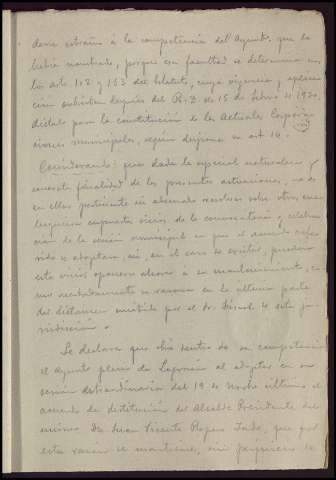 extraño á la competencia del Ayunto. que le
había nombrado, porque esa facultad se determina en
los arts. 152 y 153 del Estatuto, cuya vigencia y aplica
ción subsisten después del R. D. de 15 de febro de 1930,
dictado para la constitución de las Actuales Corpora
ciones municipales, según dispone su art 14.
Considerando: que dada la especial naturaleza y
concreta finalidad de las presentes actuaciones, no es
en ellas pertinente ni adecuado resolver sobre otros cua
lesquiera supuestos vicios de la convocatoria y celebra
ción de la sesión municipal en que el acuerdo
se adoptara, ni, en el caso de existir, pueden
esos vicios oponerse ahora á su mantenimiento, co
mo acertadamente se razona en la última parte
del dictamen emitido por el Sr. Fiscal de esta ju
risdicción.
Se declara que obró dentro de su competencia
el Ayunto pleno de Logroño al adoptar en su
sesión extraordinaria del 19 de último el
acuerdo de destitución del Alcalde Presidente del
mismo Dn Juan Vicente, que por
esta razón se mantiene, sin perjuicio de